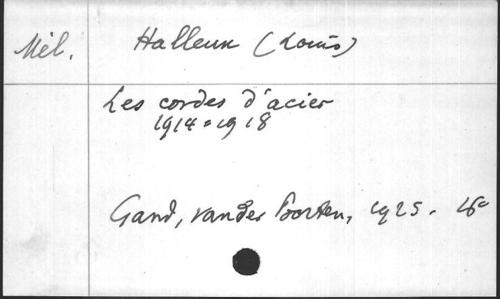 Mél. Halleux (Louis)
Les cordes d'acier
1914-1918
Gand, vander Poorten, 1925. 16°